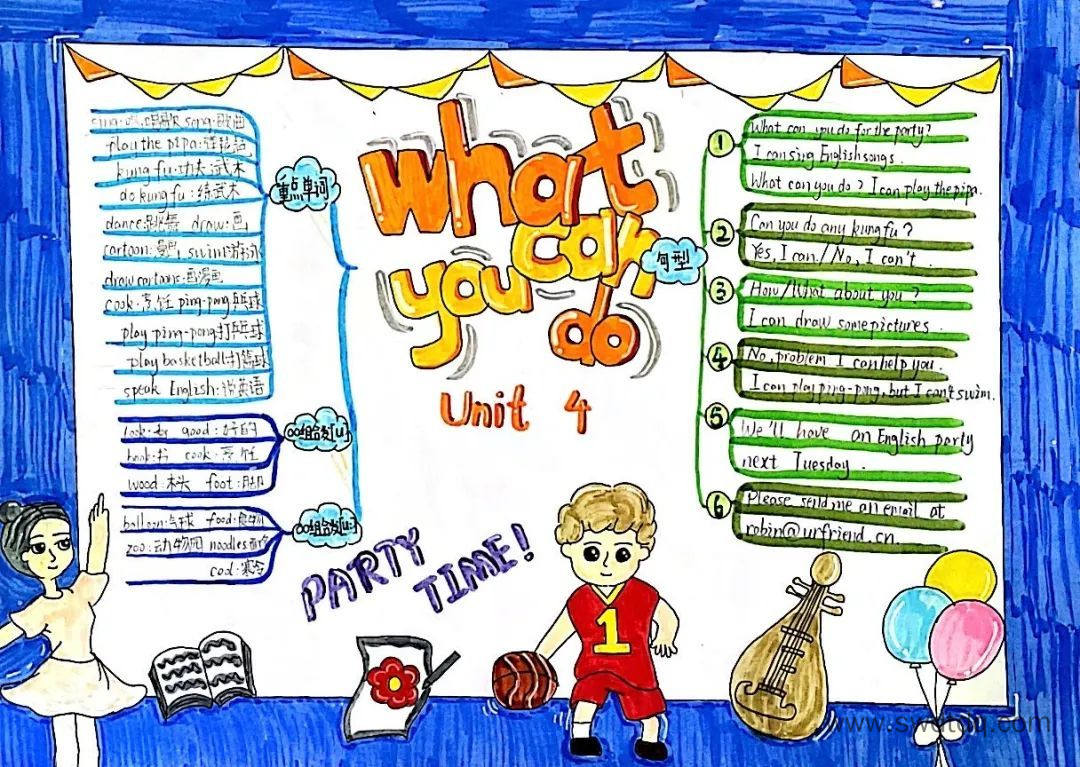 what
can
you
do
Unit 4
重点单词
sing:唱,唱歌 song:歌曲
play the pipa:弹琵琶
kung fu:功夫;武术
do kung fu:练武术
dance:跳舞 draw:画
cartoon:漫画 swim:游泳
draw cartoons:画漫画
cook:烹饪 ping-pong乒乓球
play ping-pong打乒乓球
play basketball:打篮球
speak English:说英语
oo组合发[u]
look:看 good:好的
book:书 cook:烹饪
wood:木头 foot:脚
oo组合发[u:]
balloon:气球 food:食物
zoo:动物园 noodles
cool:
句型
1
What can you do for the party?
I can sing English songs.
What can you do? I can play the pipa.
2
Can you do any kung fu?
Yes, I can./No, I can't.
3
How/What about you?
I can draw some pictures.
4
No, problem I can help you.
I can play ping-pong, but I can't swim.
5
We'll have an English party
next Tuesday.
6
Please send me an email at
robin@urfriend.cn.
PARTY
TIME!
1